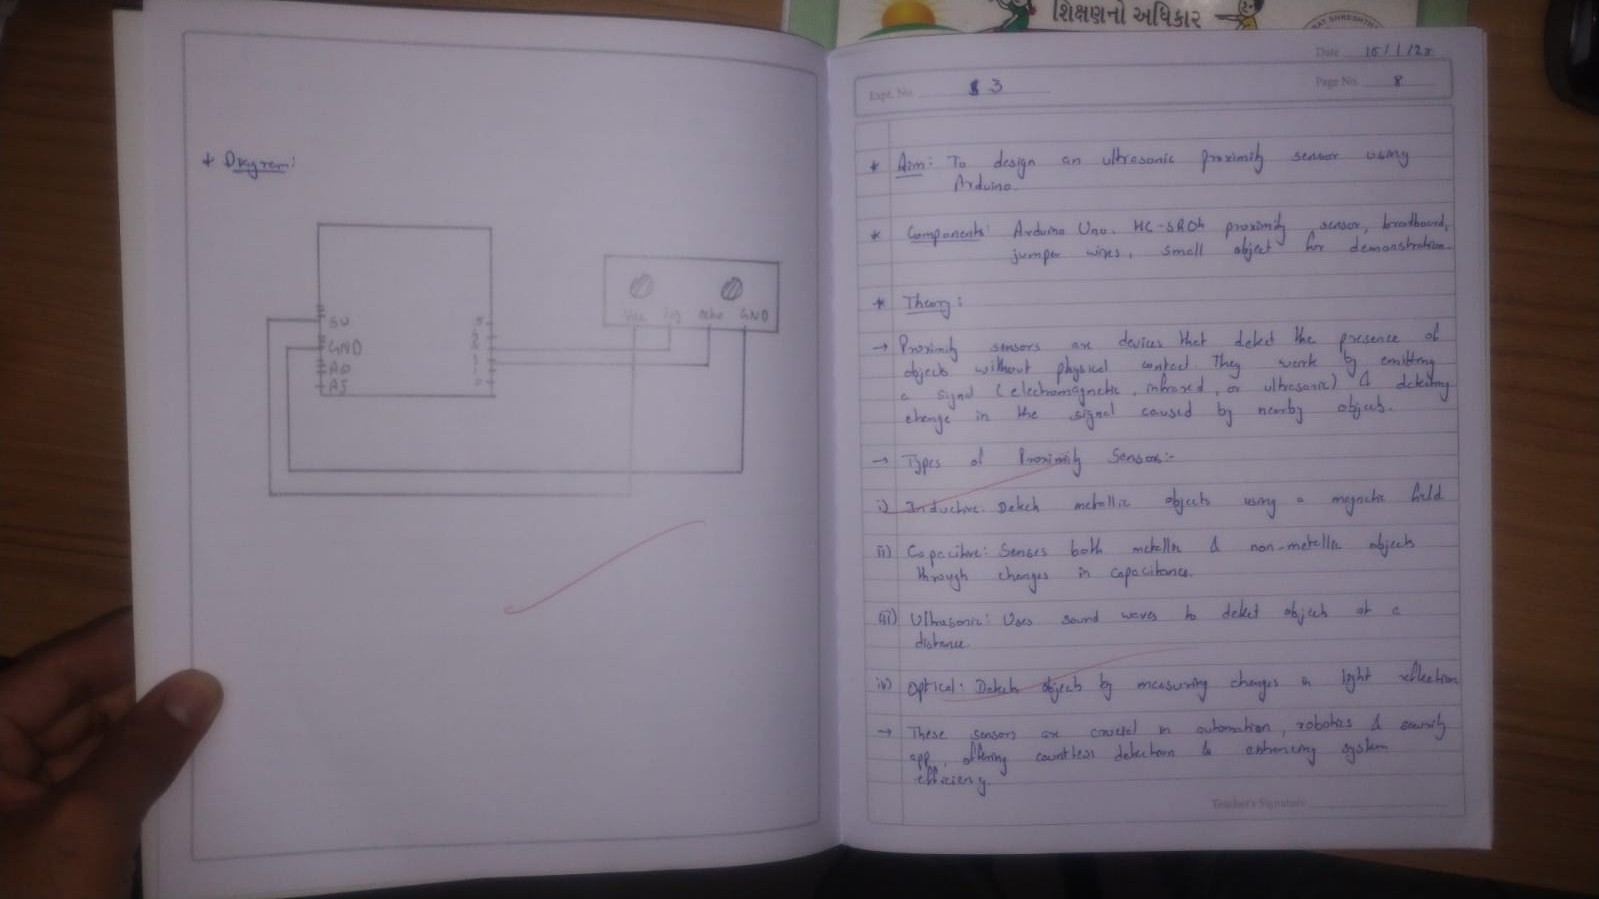 શિક્ષણનો અધિકાર
* Diagram:
5V
GND
A0
A5
Vcc Trig echo GND
Date 15/1/25
Expt. No. 3
Page No. 8
* Aim: To design an ultrasonic proximity sensor using
Arduino.
* Components: Arduino Uno, HC-SR04 proximity sensor, breadboard,
jumper wires, small object for demonstration.
* Theory:
→ Proximity sensors are devices that detect the presence of
objects without physical contact. They work by emitting
a signal (electromagnetic, infrared, or ultrasonic) & detecting
change in the signal caused by nearby objects.
→ Types of Proximity Sensors:-
i) Inductive: Detects metallic objects using a magnetic field
ii) Capacitive: Senses both metallic & non-metallic objects
through changes in capacitance.
iii) Ultrasonic: Uses sound waves to detect objects at a
distance.
iv) Optical: Detects objects by measuring changes in light reflection
→ These sensors are crucial in automation, robotics & security
app, offering countless detection & enhancing system
efficiency.
Teacher's Signature